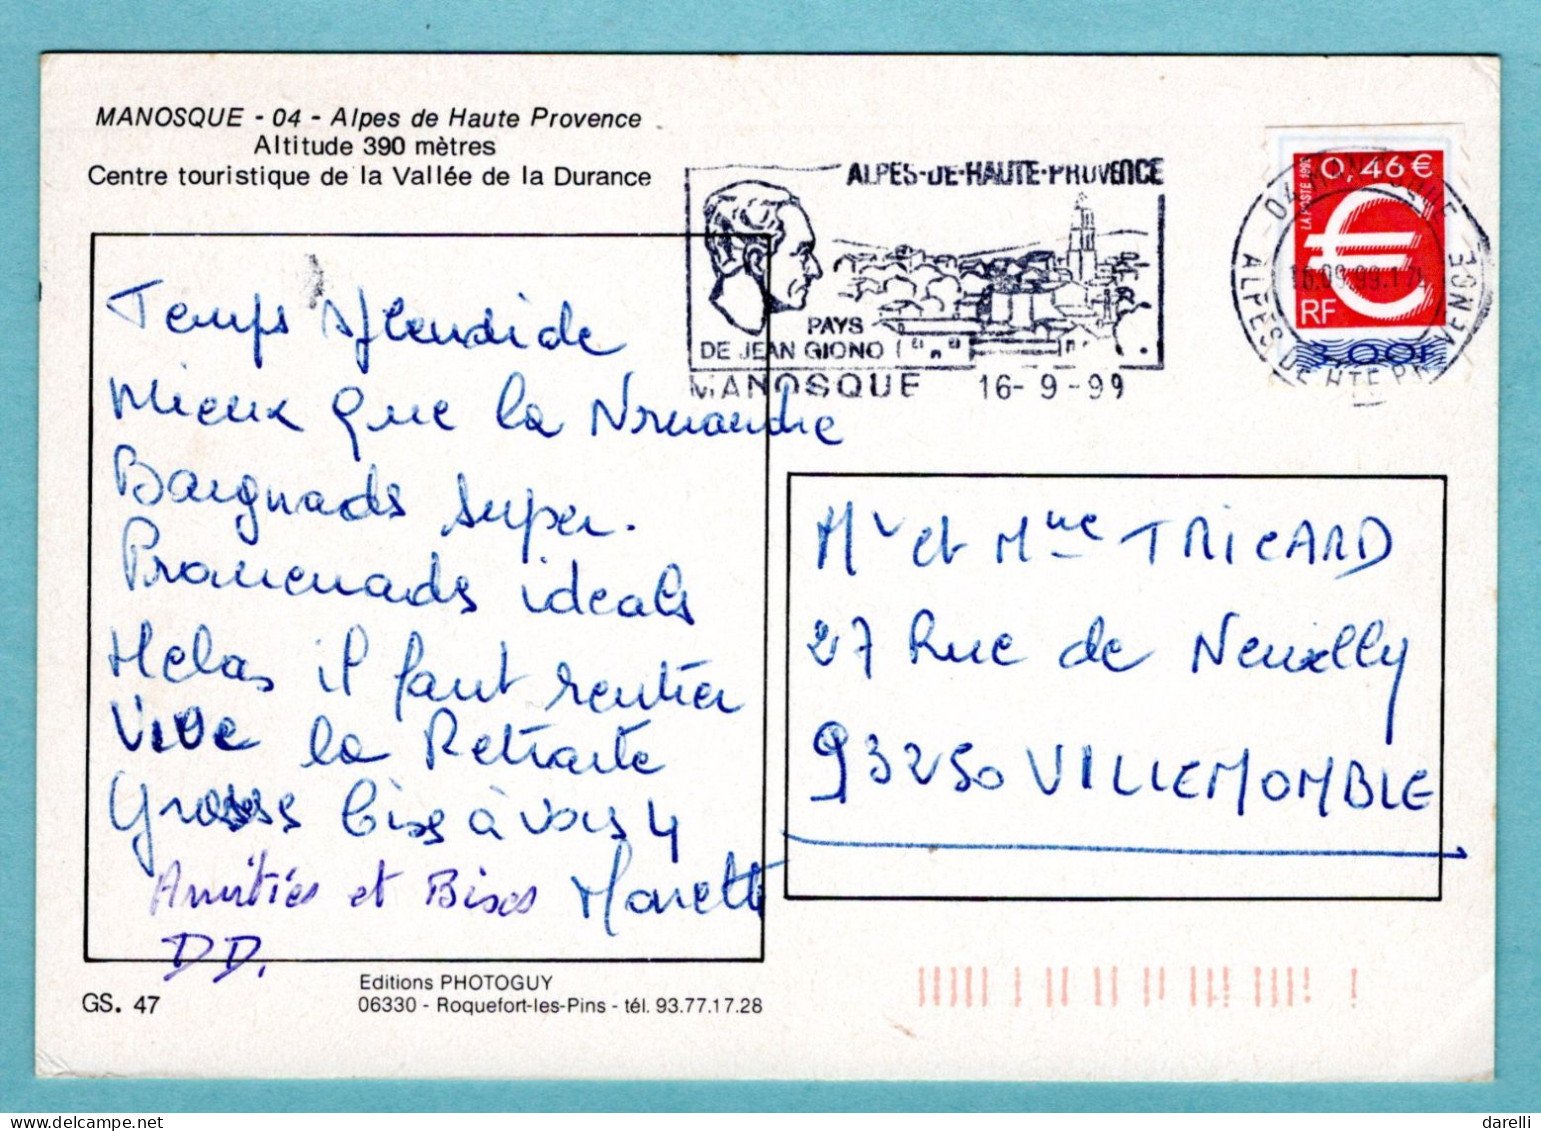 MANOSQUE - 04 - Alpes de Haute Provence
Altitude 390 mètres
Centre touristique de la Vallée de la Durance
ALPES-DE-HAUTE-PROVENCE
PAYS
DE JEAN GIONO
MANOSQUE 16-9-99
0,46 €
LA POSTE 1999
RF
3,00F
04 MANOSQUE
16.09.99
ALPES DE HTE PROVENCE
Temps splendide
Mieux que la Normandie
Baignads super.
Promenads ideals
Helas il faut rentrer
Vive la Retraite
Grosses bises à vous 4
Amitiés et Bises
DD.
Mr et Mme TRICARD
27 Rue de Neuilly
93250 VILLEMOMBLE
GS. 47
Editions PHOTOGUY
06330 - Roquefort-les-Pins - tél. 93.77.17.28
darelli